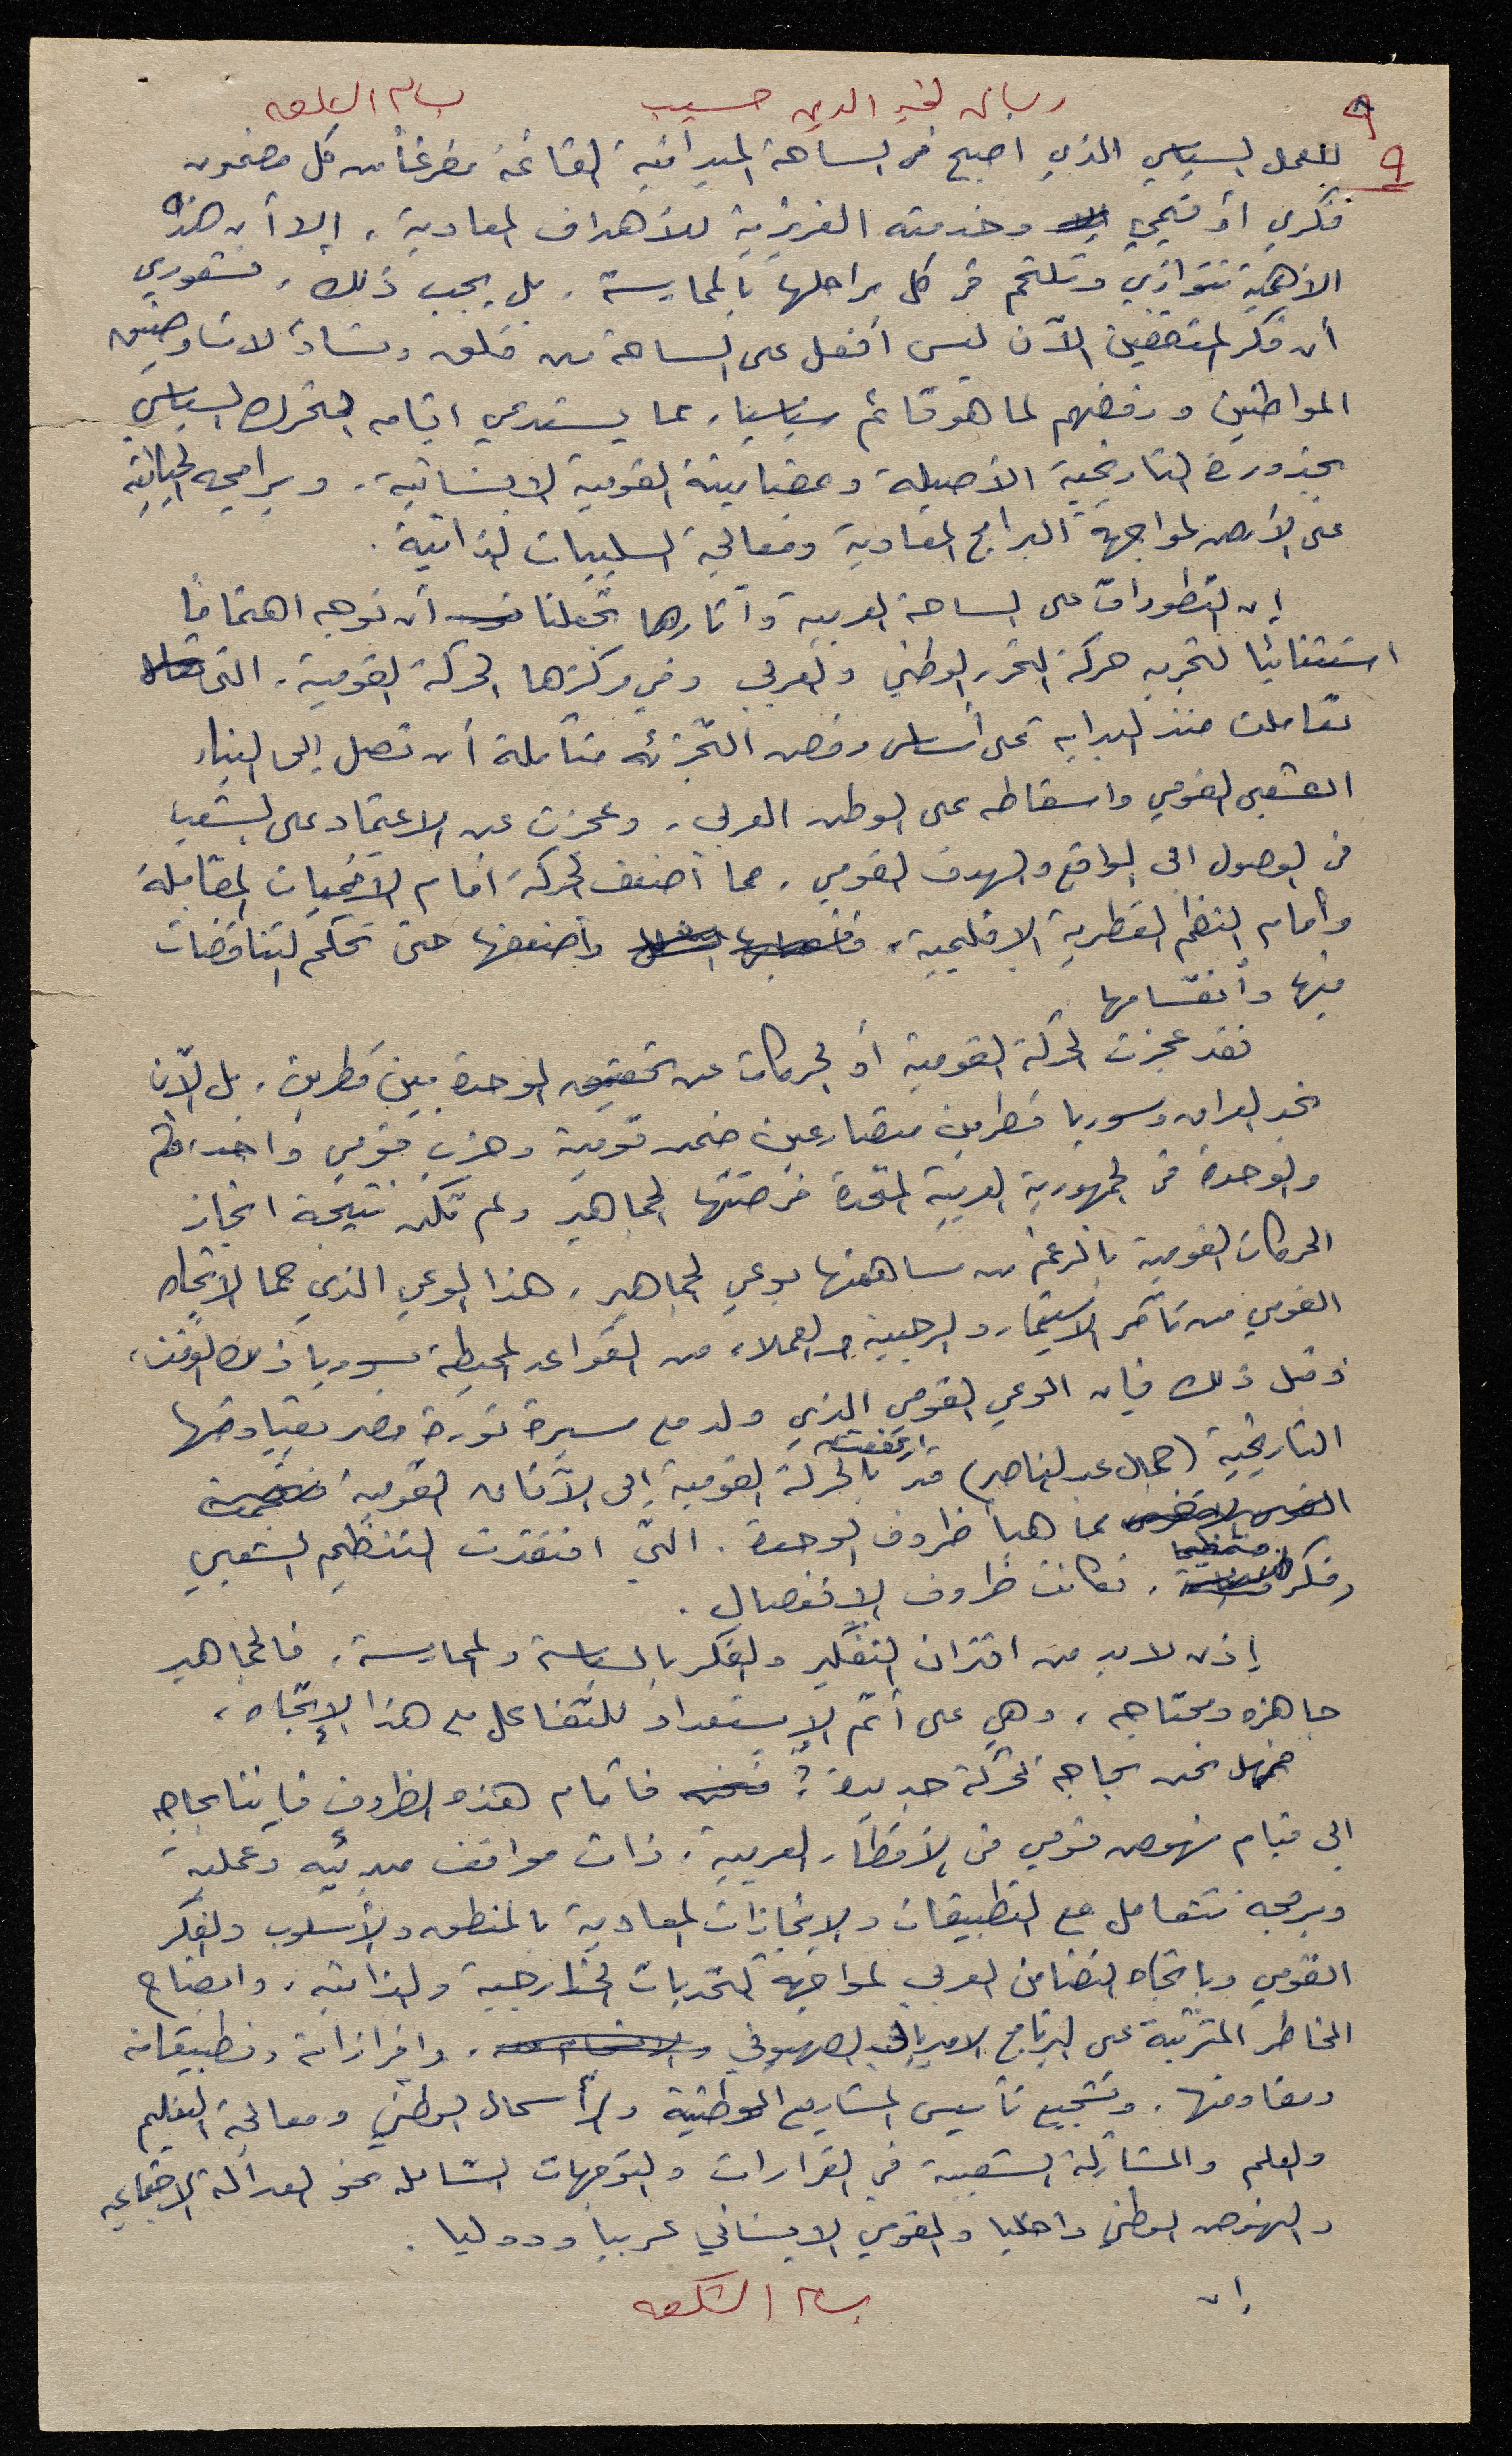 ٩ رسائل لخير الدين حسيب بسام الشكعه
٩ للعمل السياسي الذي اصبح في الساحة الميدانية القائمة مفرغاً من كل مضمون
فكري أو قيمي وخدمته الغريزية للأهداف المعادية. إلا أن هذه
الأهمية تتوازي وتلتحم في كل مراحلها بالممارسة. بل يجب ذلك، فشعوري
أن فكر المثقفين الآن ليس أفعل على الساحة من قلق وتساؤلات وضيق
المواطنين ورفضهم لما هو قائم سياسيا. مما يستدعي اقامه التحرك السياسي
بجذورة التاريخية الأصيلة وبمضامينة القومية الانسانية. وبرامجه الحياتية
على الأرض لمواجهة البرامج المعادية ومعالجة السلبيات الذاتية.
إن التطورات على الساحة العربية وآثارها تجعلنا أن نوجه اهتماما
استثنائيا لتجربه حركة التحرر الوطني والعربي وفي مركزها الحركة القومية. التي
تعاملت منذ البدايه على أساس رفض التجزئه متأملة أن تصل إلى البناء
الشعبي القومي واسقاطه على الوطن العربي. وعجزت عن الاعتماد على الشعب
في الوصول الى الواقع والهدف القومي. مما أضعف الحركة امام المقابلة
وأمام النظم القطرية الاقليمية، وأضعفها حتى تحكم التناقضات
فيها وأنقسامها
فقد عجزت الحركة القومية أو الحركات عن تحقيق الوحدة بين قطرين. بل الآن
نجد العراق وسوريا قطرين متصارعين ضمن قومية وحزب قومي واحد،
والوحدة في الجمهورية العربية المتحدة فرضتها الجماهير ولم تكن نتيجة انجاز
الحركات القومية بالرغم من مساهمتها بوعي الجماهير. هذا الوعي الذي حما الاتجاه
القومي من تآمر الاستعمار والرجعية والعملاء من القواعد المحيطة بسوريا ذلك الوقت،
وقبل ذلك فإن الوعي القومي الذي ولد مع مسيرة ثورة مصر بقيادتها
التاريخية (جمال عبد الناصر) قد ارتفعت بالحركة القومية إلى الآفاق القومية
مما هيأ ظروف الوحدة. التي افتقدت التنظيم الشعبي
وفكر منظما، فكانت ظروف الانفصال.
إذن لا بد من اقتران التفكير والفكر بالسياسة والممارسة، فالجماهير
جاهزه ومحتاجه، وهي على أتم الإستعداد للتفاعل مع هذا الإتجاه،
فهل نحن بحاجه لحركة جديدة؟ فأمام هذه الظروف فإننا بحاجه
الى قيام نهوض قومي في الأقطار العربية، ذات مواقف مبدئيه وعملية
وبرمجه تتعامل مع التطبيقات والإنجازات المعادية بالمنطق والأسلوب والفكر
القومي وباتجاه التضامن العربي لمواجهة التحديات الخارجية والذاتيه، وايضاح
المخاطر المترتبة على البرنامج الامبريالي الصهيوني، وافرازاته وتطبيقاته
ومقاومتها. وتشجيع تأسيس المشاريع الوطنية والرأسمال الوطني ومعالجة التعليم
والعلم والمشاركة الشعبية في القرارات والتوجهات الشامله نحو العدالة الاجتماعيه
والنهوض الوطني داخليا والقومي الانساني عربيا ودوليا.
إن
بسام الشكعه